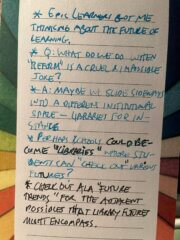 * EPIC LEARNERS GOT ME
THINKING ABOUT THE FUTURE OF
LEARNING.
* Q: WHAT DO WE DO WHEN
"REFORM" IS A CRUEL & IMPOSSIBLE
JOKE?
* A: MAYBE WE SLIDE SIDEWAYS
INTO A DIFFERENT INSTITUTIONAL
SPACE — LIBRARIES FOR IN-
STANCE
* PERHAPS SCHOOLS COULD BE-
COME "LIBRARIES" WHERE STU-
DENTS CAN "CHECK OUT" VARIOUS
FUTURES?
* CHECK OUT ALA "FUTURE
TRENDS" FOR THE ADJACENT
POSSIBLES THAT LIBRARY FUTURES
MIGHT ENCOMPASS.